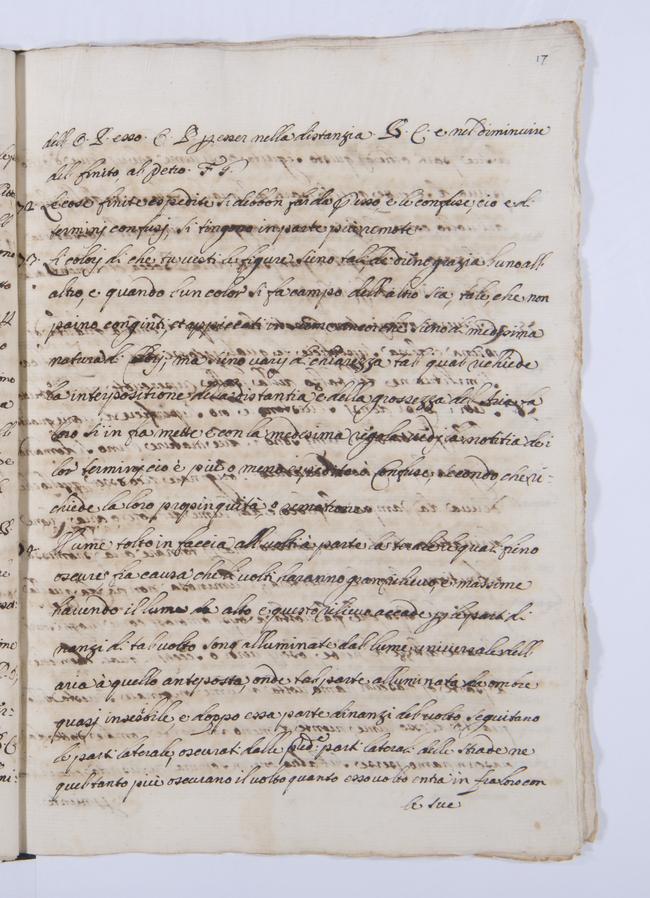 17
dell B. P. esso. C. P. p esser nella distanzia. B. C. e nel diminuire
del finito, al petto. F G.
72. Le cose finite espedite si debbon far da presso, e le confuse, cio e di
termini confusi, si fingono in parte più remote
73. Li colori di che tu vesti le figure, sieno tali che dieno grazia l'uno all
altro, e quando l'un color si fa campo dell'altro sia, tale che non
paino congiuti et appiccati insieme ancorche sieno di medesima
natura di colori, ma sieno varij di chiarezza tal qual richiede
la interpositione della distantia e della grossezza del aria
fra loro si in fra mette e con la medesima regola la notitia de i
lor termini cio è più o meno espediti o confuse, secondo che ri:
chiede la loro propinquità o remotione
74. Il lume tolto in faccia alli volti a parte laterali le quali sieno
oscure, fia causa che li volti haranno gran rilievo, e massime
havendo il lume da alto, e questo rilievo accade p le parti di
nanzi di tal volto sono alluminate dal lume universale dell
aria à quello anteposta, onde tal parte alluminata ha ombre
quasi insensibile e doppo essa parte dinanzi del volto seguitano
le parti laterali, oscurati dalle parti laterali delle strade ne
quel tanto più oscurano il volto quanto esso volto entra in fra loro con
le sue